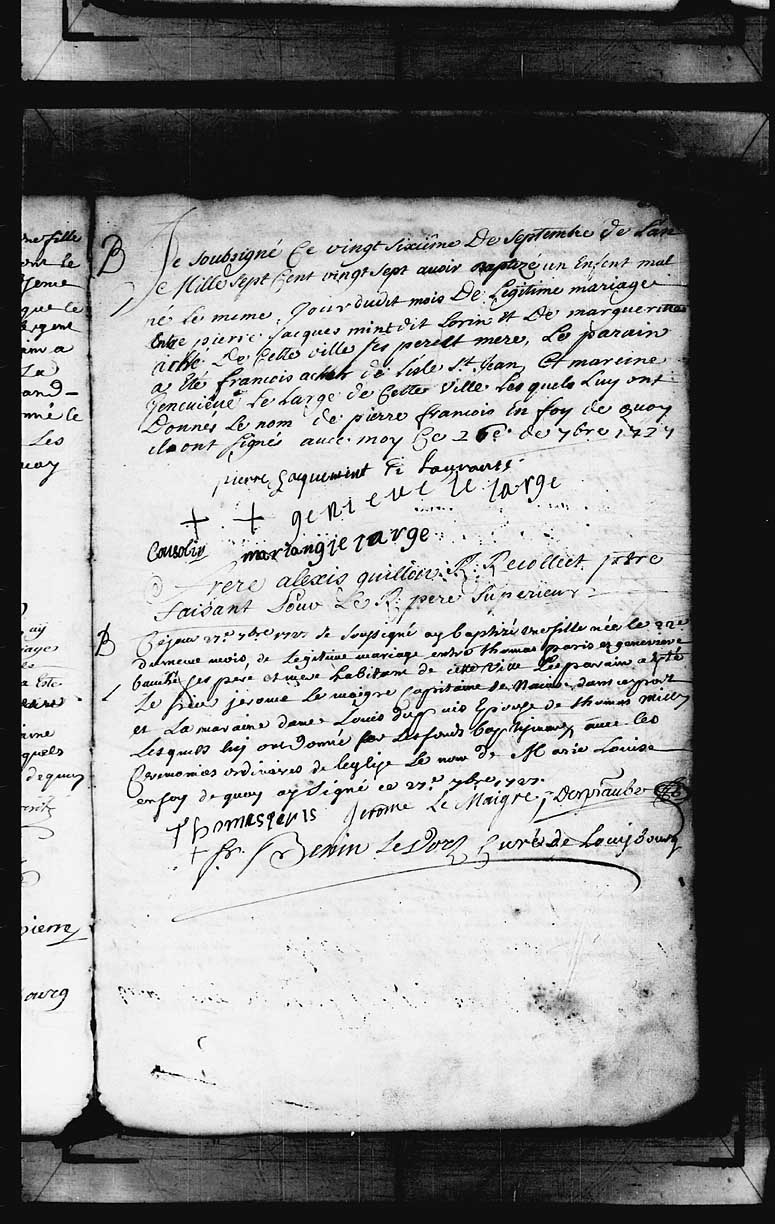 ne fille
ont le
que le
La
and-
nné le
Les
quay
B
Je soubsigné Ce vingt Sixiême De Septembre de L'an
Mille Sept Cent vingt Sept avoir Baptizé un Enfent mal
né le meme Jour dudit mois De Legitime mariage
Entre pierre Jacques mint dit Lorin Et De marguerite
De Cette ville Ses pere Et mere, Le parain
a Eté francois acher de Lisle St. Jean Et mareine
Genevieve Le Large de Cette Ville Lesquels Luy ont
Donnes Le nom de pierre francois En foy de quoy
ils ont Signés avec moy Ce 26e de 7bre 1727
pierre Jaquement
+ + genieve le large
mariangje large
frere alexis guillou R: Recollect, ptre
faisant pour Le R: pere Superieur
ay
B
Ce jour 27e 7bre 1727 Je Soussigné ay baptisé une fille née le 22e
du meme mois, de Legitime mariage entre thomas paris et genevieve
Ses pere et mere habitans de cette ville Le parain a esté
Le Sieur jerome Le maigre Capitaine de Navire dans ce port
et La maraine dame Louis dupuis Epouse de thomas milly
Lesquels luy ont donné Les fonds baptismaux avec les
Ceremonies ordinaires de leglise Le nom de Marie Louise
en foy de quoy ay Signé ce 27e 7bre 1727.
Thomas paris Jerome Le Maigre
+ fr. Benin Le Dorz Curé de Louisbourg
quels
de quoy
pierre
ourg